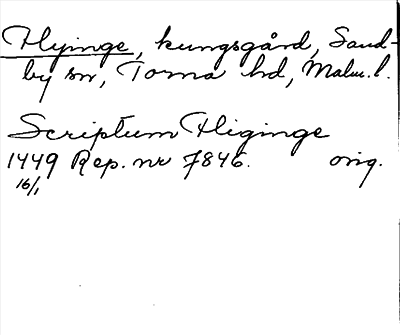 Hyinge, kungsgård, Sand-
by sn, Torna hd, Malm. l.
Scriptum Higinge
1449 Rep. nr 7846. orig.
16/1